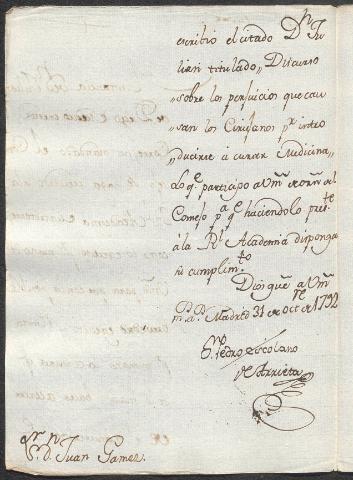 escribió el citado Dn. Ju
lian titulado,, Discurso
,, sobre los perjuicios que cau
,, san los Cirujanos pr. intro
,, ducirse à curar Medicina,,
Lo qe. participo a Vm. de orn. del
Consejo pa. qe. haciendolo pres.te
à la Rl. Academia disponga
su cumplim.to
Dios gue. a Vm.
m.s a.s Madrid 31 de Oct.re de 1792
Pedro Escolano
de Arrieta
Sr. Dn. Juan Gamez.